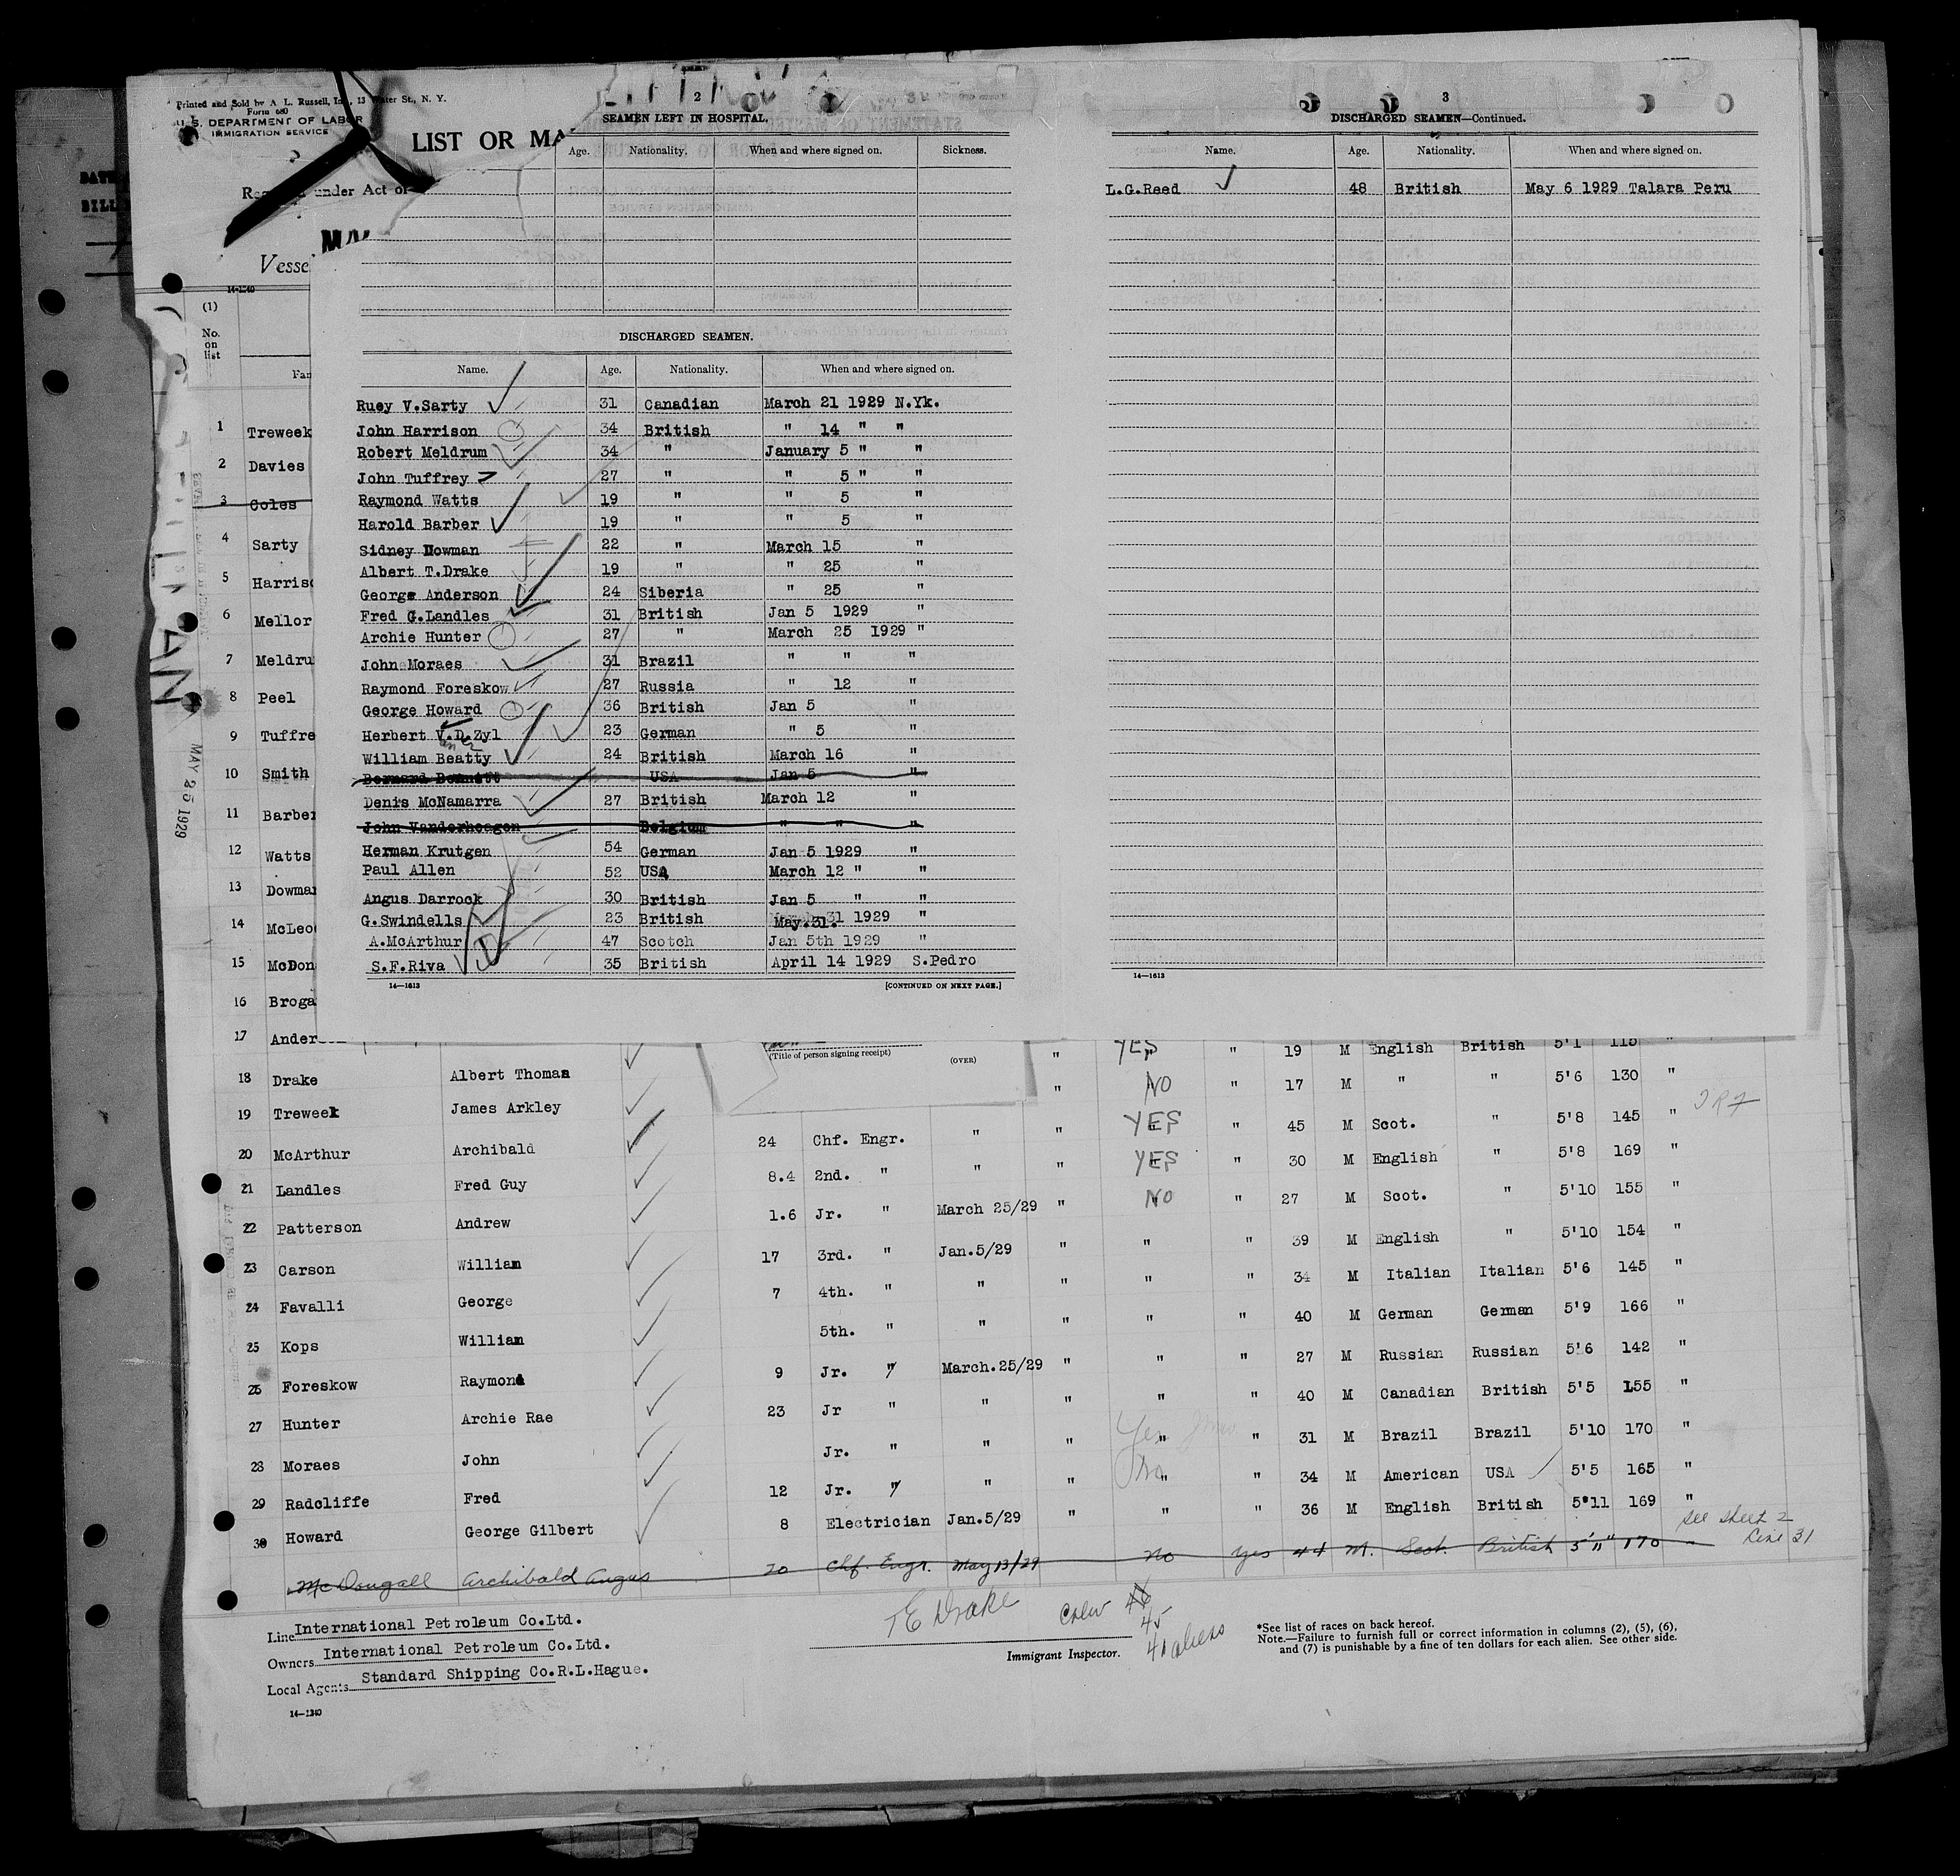 Printed and Sold by A. L. Russell, Inc., 13 Water St., N. Y.
Form 680
U. S. DEPARTMENT OF LABOR
IMMIGRATION SERVICE
LIST OR MA
under Act of
Vesse
14-1240
(1)
No. on list
Fam
2
SEAMEN LEFT IN HOSPITAL.
Age. Nationality. When and where signed on. Sickness.
DISCHARGED SEAMEN.
Name. Age. Nationality. When and where signed on.
Ruey V.Sarty 31 Canadian March 21 1929 N.Yk.
John Harrison 34 British " 14 " "
Robert Meldrum 34 " January 5 " "
John Tuffrey 27 " " 5 " "
Raymond Watts 19 " " 5 "
Harold Barber 19 " " 5 "
Sidney Dowman 22 " March 15 "
Albert T.Drake 19 " " 25 "
George Anderson 24 Siberia " 25 "
Fred G.Landles 31 British Jan 5 1929 "
Archie Hunter 27 " March 25 1929 "
John Moraes 31 Brazil " " "
Raymond Foreskow 27 Russia " 12 "
George Howard 36 British Jan 5 "
Herbert V.D.Zyl 23 German " 5 "
William Beatty 24 British March 16 "
Bernard Bennett USA Jan 5 "
Denis McNamarra 27 British March 12 "
John Vanderheagen Belgium " " "
Herman Krutgen 54 German Jan 5 1929 "
Paul Allen 52 USA March 12 " "
Angus Darrock 30 British Jan 5 " "
G.Swindells 23 British May.31. 1929 "
A.McArthur 47 Scotch Jan 5th 1929 "
S.F.Riva 35 British April 14 1929 S.Pedro
14—1613 [CONTINUED ON NEXT PAGE.]
3
DISCHARGED SEAMEN—Continued.
Name. Age. Nationality. When and where signed on.
L.G.Reed 48 British May 6 1929 Talara Peru
14—1613
1 Treweek
2 Davies
3 Coles
4 Sarty
5 Harriso
6 Mellor
7 Meldru
8 Peel
9 Tuffre
10 Smith
11 Barber
12 Watts
13 Dowman
14 McLeo
15 McDon
16 Broga
17 Ander
MAY 25 1929
(Title of person signing receipt)
(OVER)
" YES " 19 M English British 5'1 115 "
18 Drake Albert Thomas " NO " 17 M " " 5'6 130 "
19 Treweek James Arkley 24 Chf. Engr. " " YES " 45 M Scot. " 5'8 145 "
20 McArthur Archibald 8.4 2nd. " " " YES " 30 M English " 5'8 169 "
21 Landles Fred Guy 1.6 Jr. " March 25/29 " NO " 27 M Scot. " 5'10 155 "
22 Patterson Andrew 17 3rd. " Jan.5/29 " " " 39 M English " 5'10 154 "
23 Carson William 7 4th. " " " " " 34 M Italian Italian 5'6 145 "
24 Favalli George 5th. " " " " " 40 M German German 5'9 166 "
25 Kops William 9 Jr. " March.25/29 " " " 27 M Russian Russian 5'6 142 "
26 Foreskow Raymond 23 Jr " " " " " 40 M Canadian British 5'5 155 "
27 Hunter Archie Rae Jr. " " " Yes " " 31 M Brazil Brazil 5'10 170 "
28 Moraes John 12 Jr. " " " " " 34 M American USA 5'5 165 "
29 Radcliffe Fred 8 Electrician Jan.5/29 " " " 36 M English British 5'11 169 "
30 Howard George Gilbert
see sheet 2 Line 31
McDougall Archibald Angus 20 Chf. Engr. May 13/29 No yes 44 M. Scot. British 5'11" 170
Line International Petroleum Co.Ltd.
Owners International Petroleum Co.Ltd.
Local Agents Standard Shipping Co.R.L.Hague.
14—1240
T E Drake
Immigrant Inspector.
Crew 46
45
41 aliens
*See list of races on back hereof.
Note.—Failure to furnish full or correct information in columns (2), (5), (6),
and (7) is punishable by a fine of ten dollars for each alien. See other side.